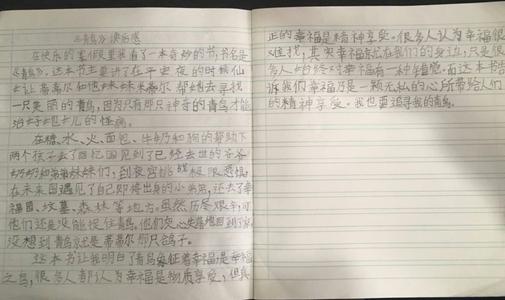 《青鸟》读后感
在快乐的暑假里我看了一本奇妙的书，书名是
《青鸟》。这本书主要讲了在平安夜的时候仙
女让蒂蒂尔和他妹妹米蒂尔帮她去寻找
一只美丽的青鸟，因为只有那只神奇的青鸟才能
治好她女儿的怪病。
在糖、水、火、面包、牛奶和狗的帮助下
两个孩子去了回忆国见到了已经去世的爷爷
奶奶和弟弟妹妹们，到夜宫挑战极限恐惧，
在未来国遇见了自己即将出身的小弟弟，还去了幸
福园、坟墓、森林等地方。虽然历尽艰辛，可
他们还是没能捉住青鸟。他们灰心失落地回到了家
没想到青鸟就是蒂蒂尔那只鸽子。
这本书让我明白了青鸟象征着幸福是幸福
之鸟，很多人都认为幸福是物质享受，但真
正的幸福是精神享受。很多人认为幸福很
难找，其实幸福就在我们的身边，只是很
多人给对幸福有一种错觉。而这本书告
诉我们幸福乃是一颗无私的心所带给人们
的精神享受。我也要追寻我的青鸟。